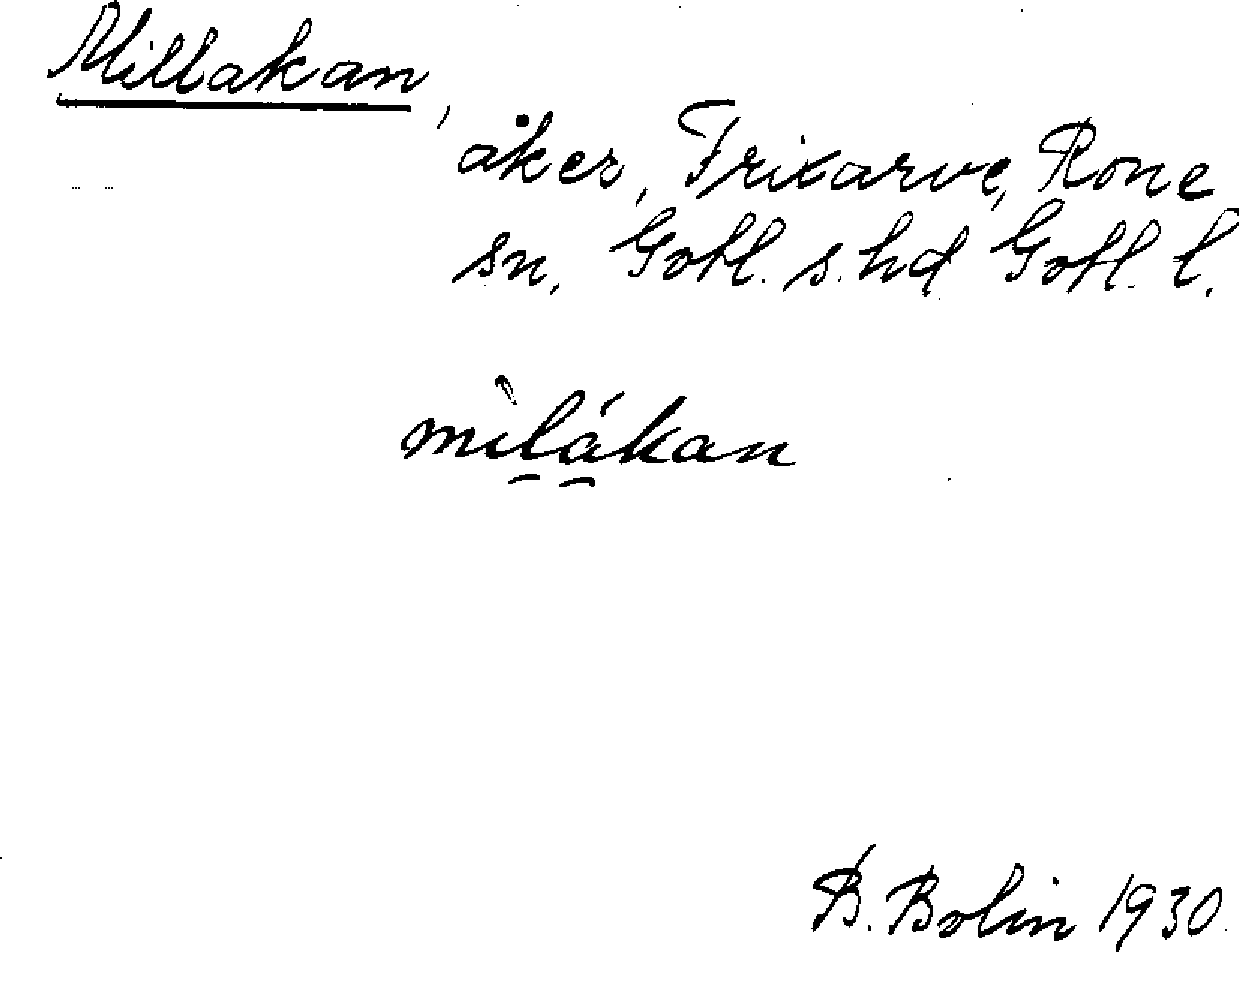 Millakan,
åker, Frixarve, Rone
sn, Gotl. s. hd Gotl. l.
mìlákan
B. Bolin 1930.